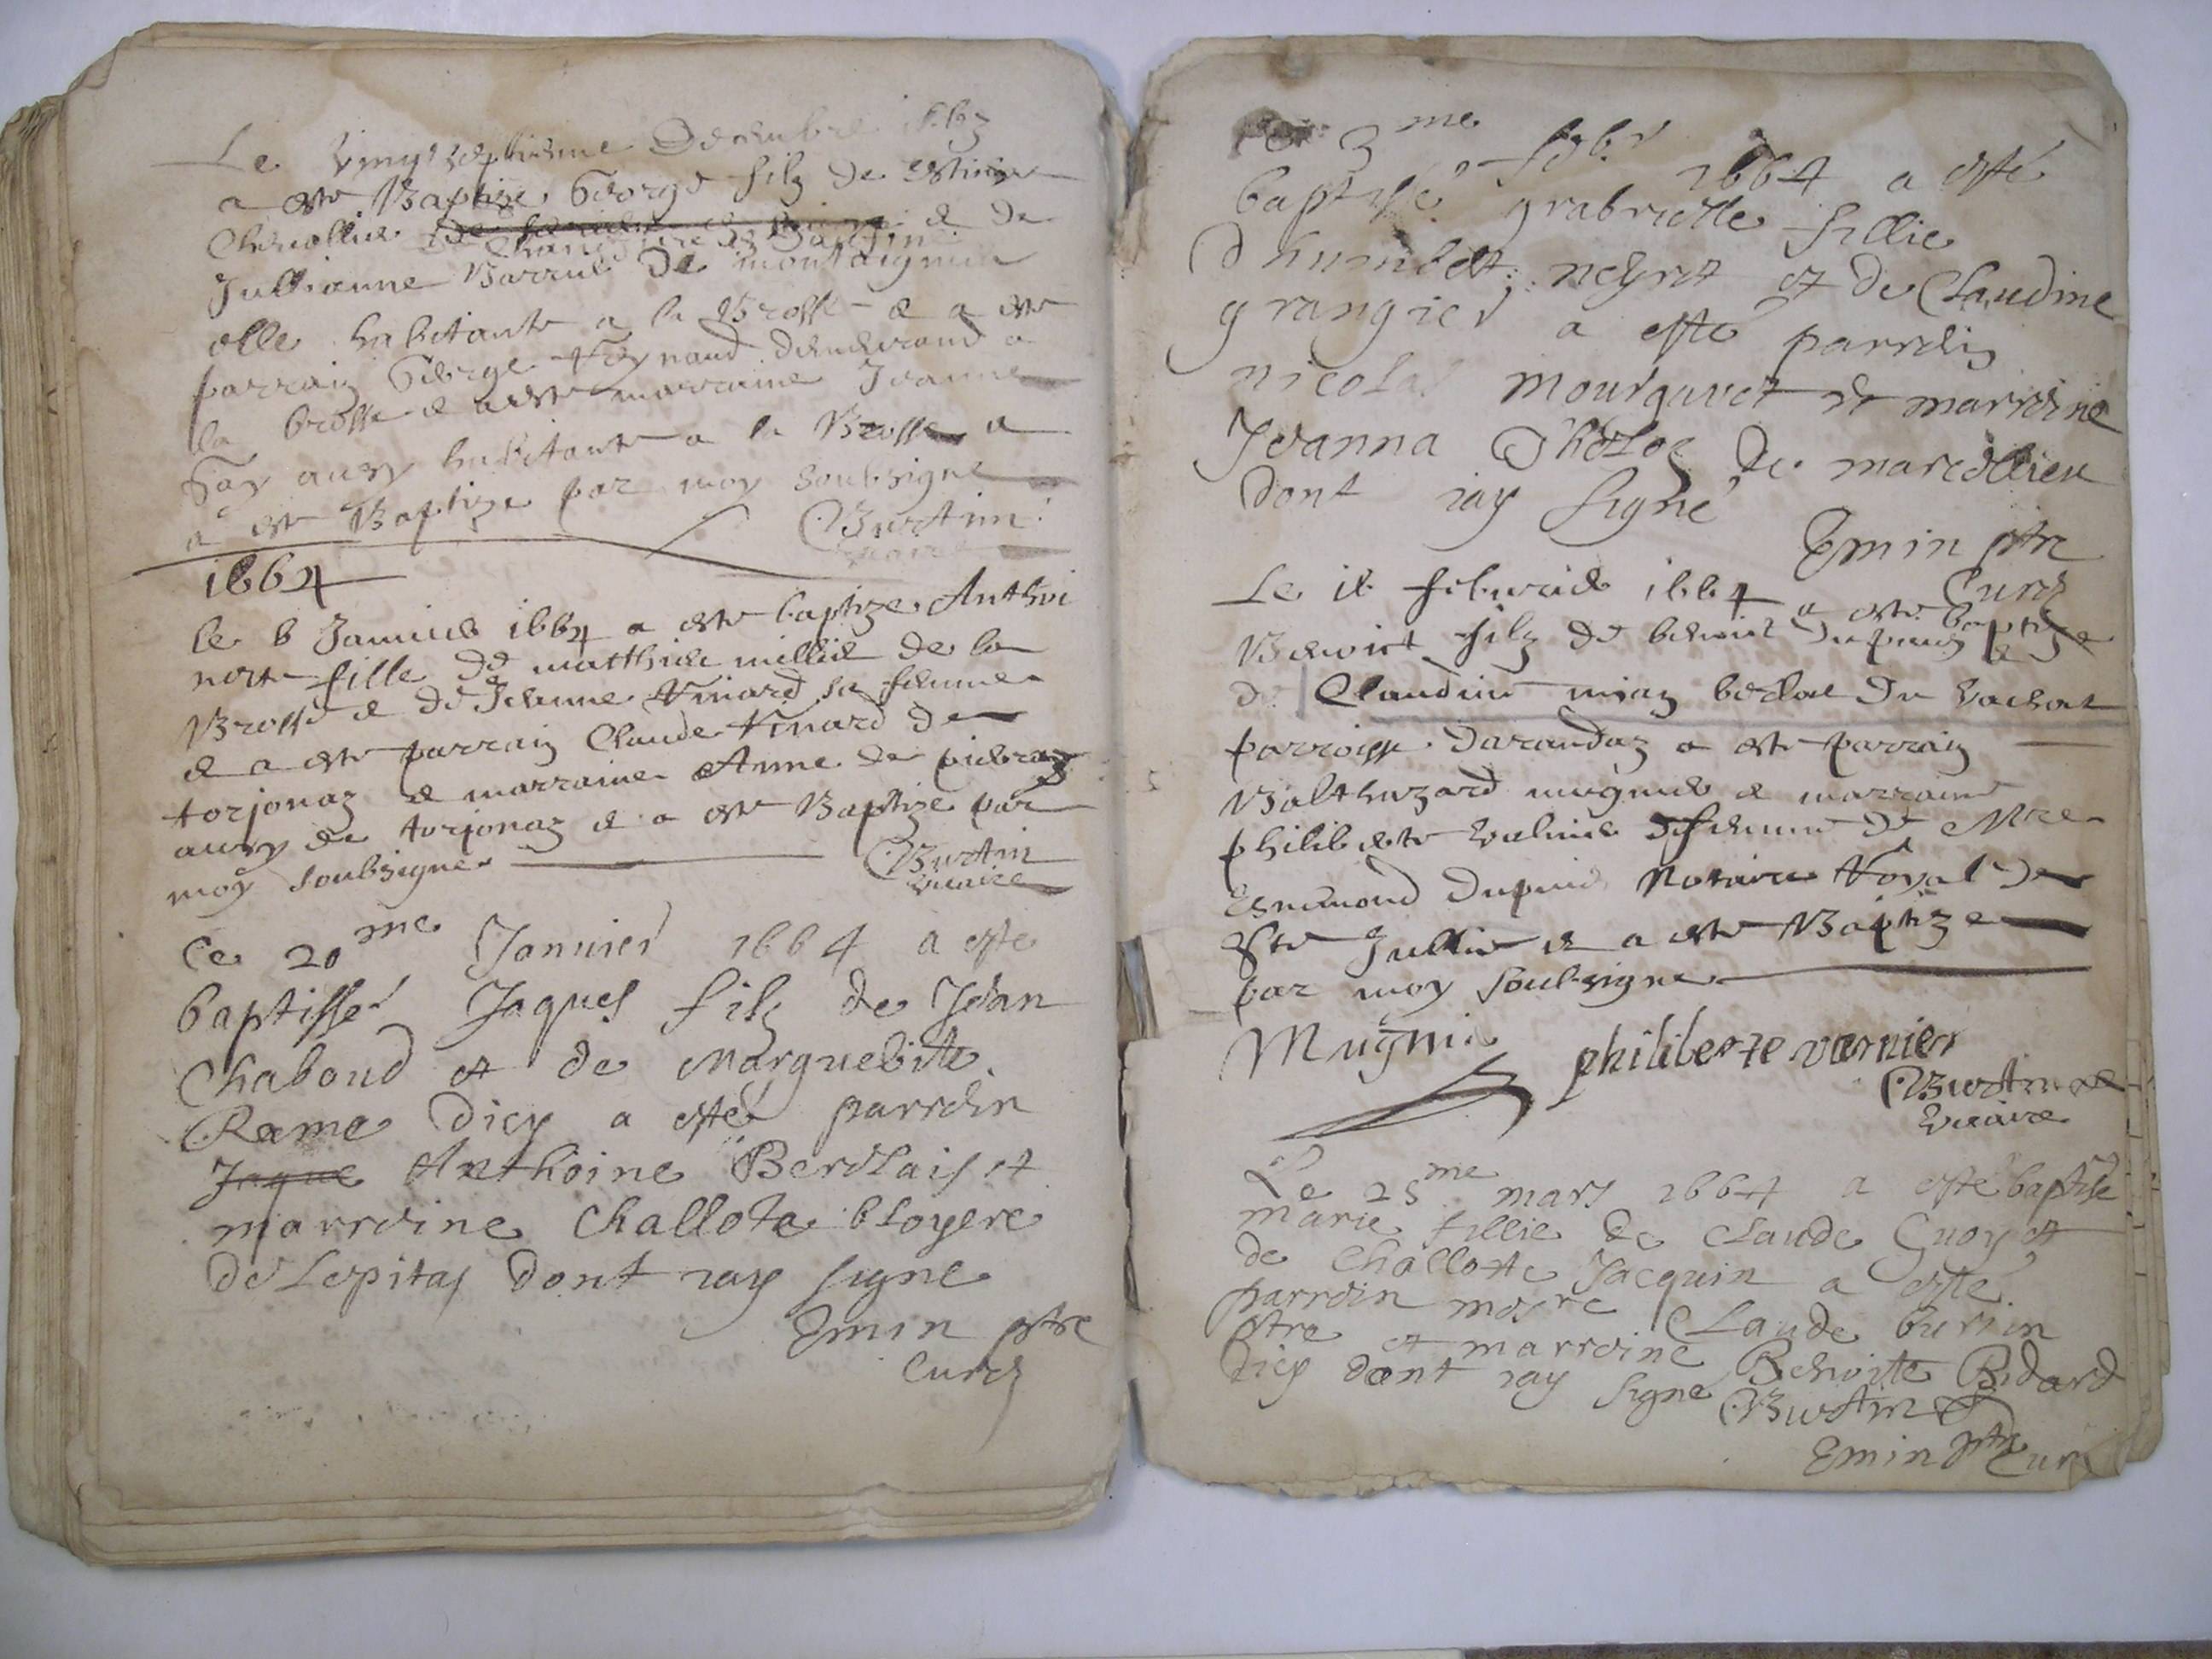 Le Vingt septiesme Decembre 1663
a este Baptize George filz de Estienne
Chevallier & de
Jullianne Barrue de montaignieu
elle habitante a la Brosse & a este
parrain George Reynaud demeurand a
la brosse & a este marraine Jeanne
Gay aussy habitante a la Brosse a
a este Baptize par moy soubsigne
Burtin
vicaire
1664
le 6 Janvier 1664 a este baptize Anthoi
nette fille de matthieu millier de la
Brosse & de Jeanne Vinard sa femme
& a este parrain Claude Vinard de
torjonaz & marraine Anne de
aussy de torjonaz & a este Baptize par
moy soubsigne
Burtin
vicaire
Ce 20me Janvier 1664 a esté
baptissé Jaques filz de Jean
Chaboud et de Marguerite
Rame dicy a esté parrein
Jaque Anthoine Berdlais et
marreine Challote bloyere
de Lepitay dont iay signe
Emin ptre
Curez
3me febr 1664 a esté
baptissé grabrielle fillie
d humbert neyret et de Claudine
grangier a esté parrein
nicolas mourguet et marreine
Jeanna de marcollieu
dont iay signé
Emin ptre
Curez
Le 11 febvrier 1664 a este baptize
Benoict filz de benoict Dupuis &
de Claudine miaz du vachat
parroisse Darandaz a este parrain
Balthazard mugnier & marraine
philiberte femme de Mre
Esmond Dupuis Notaire Royal de
St Jullin & a este Baptize
par moy soubsigne
Mugnie philiberte varnier
Burtin
vicaire
Le 25me mars 1664 a esté baptise
marie fillie de Claude Guoy et
de Challotte Jacquin a esté
parrein Claude burtin
ptre et marreine Benoite Bidard
dicy dont iay signé Burtin
Emin ptre Cure